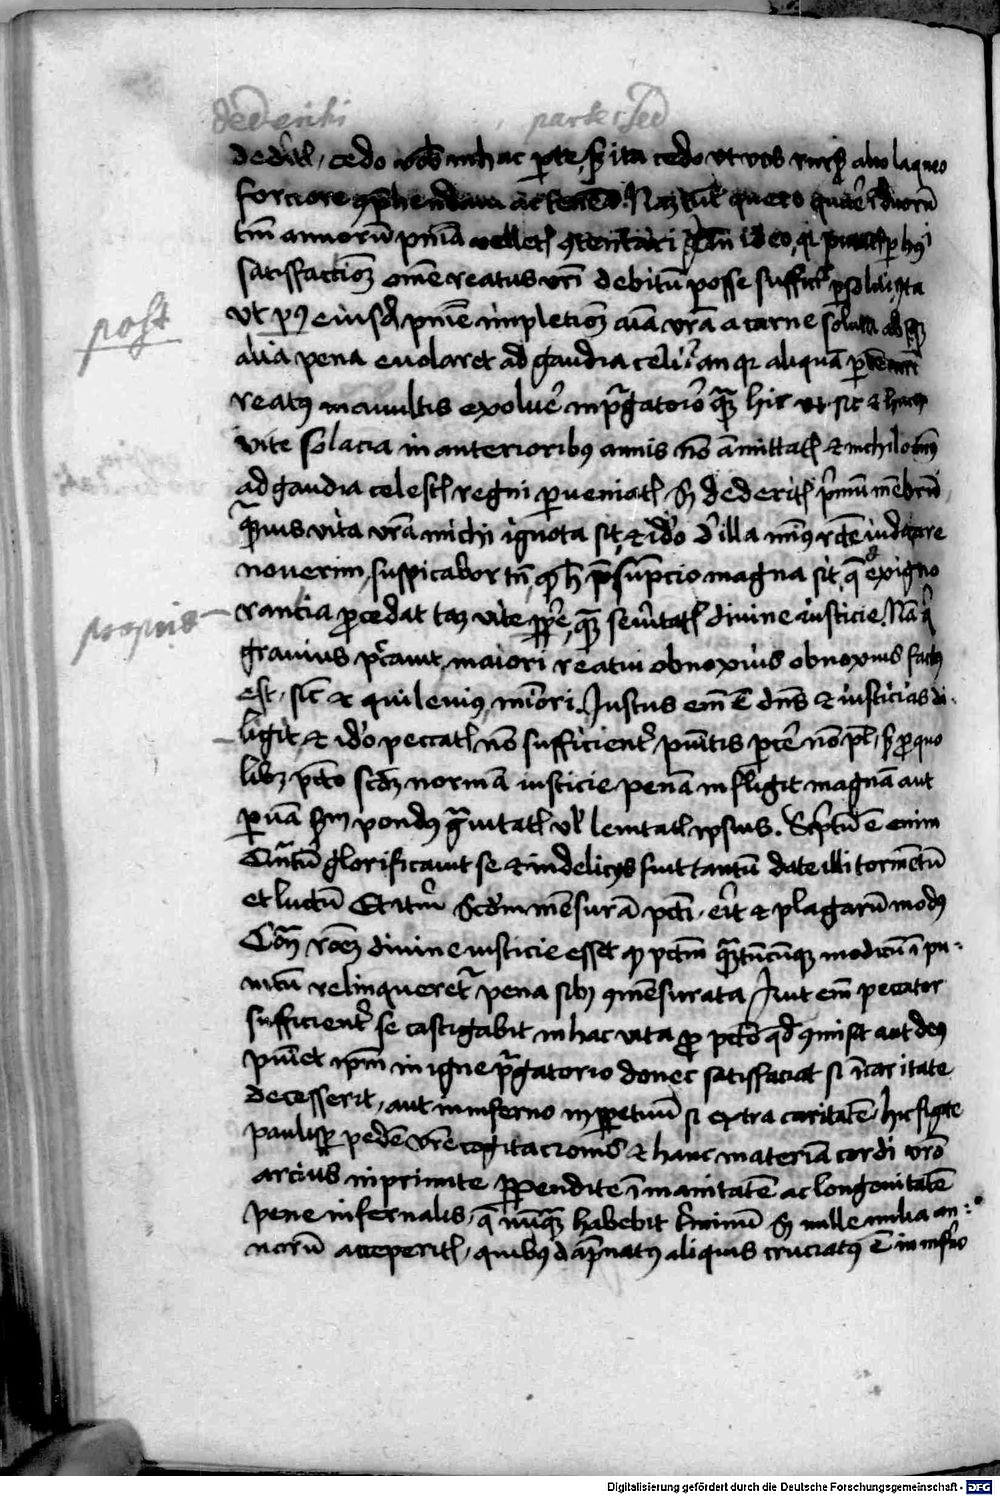 dederitis partes sed
dederitis, cedo vobis in hac parte, sed ita cedo ut vos rursum alio laqueo
forciore ac
tantum annorum velletis ideo, quia
satisfactionem omne reatus vestri debitum posse sufficienter ita
ut post eiusdem penitentie impletionem animam vestram a carne
alia pena evolaret ad gaudia celi, an quia aliquam
post
reatus mavultis exolvere in purgatorio quam hic ut sic et
vite solacia in anterioribus annis non amittatis et nichilominus
ad gaudia celestis regni perveniatis. Si dederitis primum membrum,
quamvis vita vestra michi ignota sit, et ideo de illa minus recte iudicare
noverim, suspicabor tamen, quod hec presumpcio magna sit, que ex igno
rancia procedat tam vite proprie, quam severitatis divine iusticie. Nam qui
propriis
gravius peccavit, maiori reatui obnoxius obnoxius factus
est, sic et qui levius, minori. Iustus enim est dominus et iusticias di
ligit et ideo peccatis non sufficienter punitis parcere non potest, sed pro quo
libet peccato secundum normam iusticie penam infligit magnam aut
parvam secundum pondus gravitatis vel lenitatis ipsius. Scriptum est enim
Quantum glorificavit se et in deliciis fuit tantum date illi tormentum
et luctum Et iterum Secundum mensuram peccati, erit et plagarum modus
Contra rationem divine iusticie esset quod peccatum quantumcunque modicum inpu
nitum relinqueretur pena sibi commensurata. Aut enim peccator
sufficienter se castigabit in hac vita pro peccato quod commisit aut deus
puniet ipsum in igne purgatorio donec satisfaciat si in caritate
decesserit, aut in inferno in perpetuum si extra caritatem. hic figite
paulisper pedem vestre cogitacionis et hanc materiam cordi vestro
arcius inprimite perpendite inmanitatem ac longevitatem
pene infernalis, que nunquam habebit terminum Si mille milia an
norum acceperitis, quibus dampnatus aliquis cruciatus est in inferno
Digitalisierung gefördert durch die Deutsche Forschungsgemeinschaft - DFG